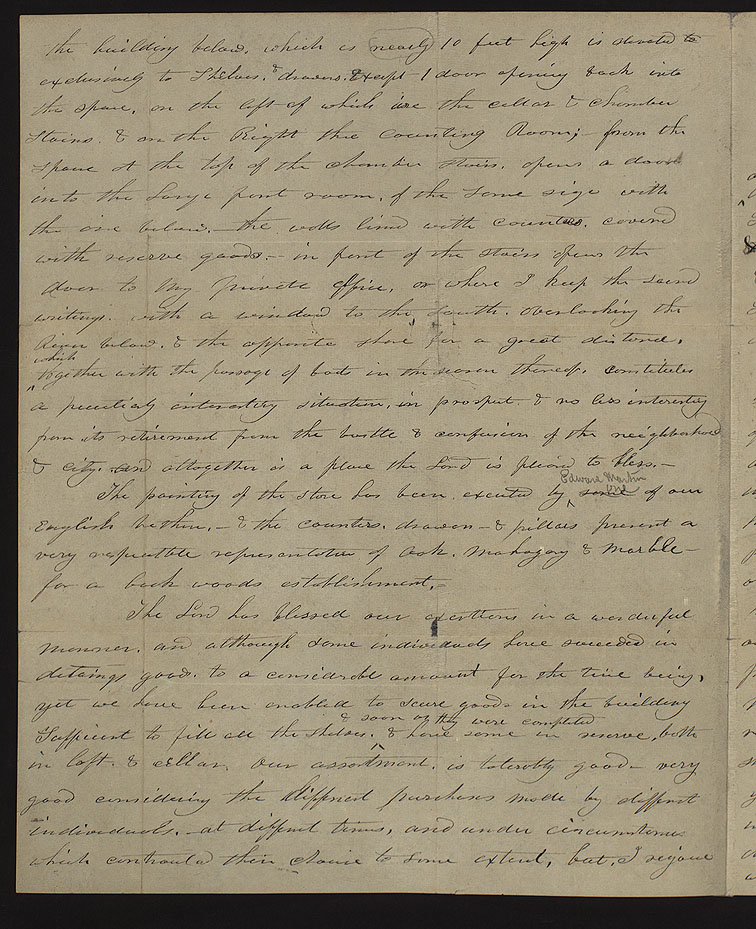 the building below, which is nearly 10 feet high is devoted to
exclusively to Shelves, & drawers. Except 1 door opening back into
the space, on the left of which are the cellar & chamber
Stairs. & on the Right the Counting Room; - from the
space at the top of the chamber stairs. opens a door
into the large front room, of the same size with
the one below. the walls lined with counters. covered
with reserve goods. - in front of the stairs opens the
door to my private office, or where I keep the sacred
writings. with a window to the South. overlooking the
River below. & the opposite shore for a great distance,
which
together with the passage of boats in the season thereof, constitutes
a peculiarly interesting situation, in prospect & no less interesting
from its retirement from the bustle & confusion of the neighborhood
& city. and altogether is a place the Lord is pleased to bless. -
Edward Martin
one
The painting of the store has been executed by some of our
English brethren. - & the counters. drawers - & pillars present a
very respectable representation of oak. mahogany & marble -
for a back woods establishment. -
The Lord has blessed our exertions in a wonderful
manner. and although some individuals have succeeded in
detaining goods. to a considerable amount for the time being,
yet we have been enabled to secure goods in the building
& soon as they were completed
Sufficient to fill all the shelves, & have some in reserve, both
in loft. & cellar. our assortment. is tolerably good - very
good considering the different purchases made by different
individuals. - at different times, and under circumstances
which controuled their choice to some extent, but, I rejoice